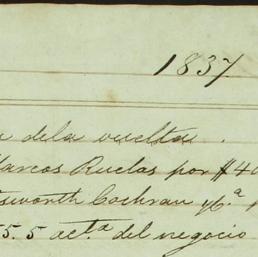 1837
dela vuelta.
Marcos Ruelas por $40
Cochran
5.5 act.a del negocio